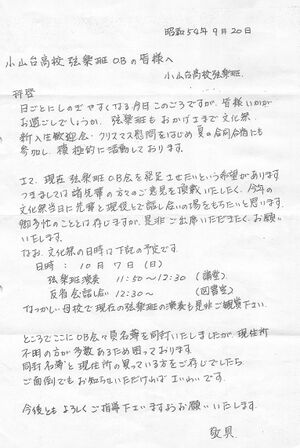 昭和54年9月20日
小山台高校弦楽班OBの皆様へ
小山台高校弦楽班
拝啓
日ごとにしのぎやすくなる今日このごろですが、皆様いかが
お過ごしでしょうか。弦楽班もおかげさまで文化祭、
新入生歓迎会・クリスマス慰問をはじめ夏の合同合宿にも
参加し、積極的に活動しております。
さて、現在弦楽班OB会を発足させたいという希望があります
つきましては諸先輩の方々のご意見を頂戴いたしたく、今年の
文化祭当日に先輩と現役とで話し合いの場をもちたいと思います。
御多忙のことと存じますが、是非ご出席いただきたく、お願い
いたします。
なお、文化祭の日時は下記の予定です。
日時：10月7日(日)
弦楽班演奏 11:50〜12:30 (講堂)
反省会話し合い 12:30〜 (図書室)
なつかしい母校で現在の弦楽班の演奏も是非ご観賞下さい。
ところでここにOB会々員名簿を同封いたしましたが、現住所
不明の方が多数あるため困っております。
同封名簿と現住所の異っている方をご存じでしたら、
ご面倒でもお知らせいただければさいわいです。
今後ともよろしくご指導下さいますようお願いいたします。
敬具